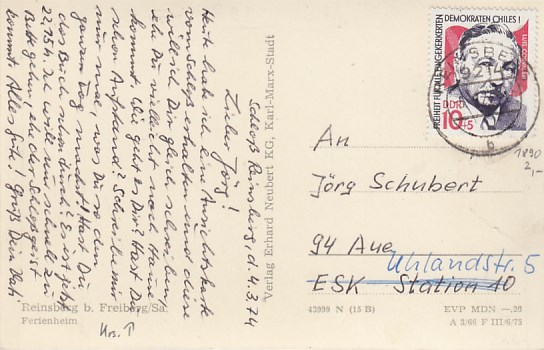 Schloß Reinsberg, d. 4.3.74
Lieber Jörg!
Heute habe ich eine Ansichtskarte
vom Schloß erhalten und diese
will ich Dir gleich schreiben,
ehe Du vielleicht nach Hause
kommst. Wie geht es Dir? Hast Du
schon Aufstand? Schreibe mir
nur mal, was Du so den
ganzen Tag machst! Hast Du
das Buch schon durch? Es ist jetzt
22,15 h. Ich will nur schnell zu
Bett gehen, ehe der Schloßgeist
kommt. Alles gute! Gruß Dein Vati
Reinsberg b. Freiberg/Sa.
Ferienheim
Verlag Erhard Neubert KG, Karl-Marx-Stadt
FREIHEIT FÜR ALLE EINGEKERKERTEN
DEMOKRATEN CHILES!
LUIS CORVALAN
DDR
10+5
9214
b
1890
2,-
An
Jörg Schubert
94 Aue
Uhlandstr. 5
ESK Station 10
43999 N (15 B)
EVP MDN —.20
A 3/66 F III/6/75